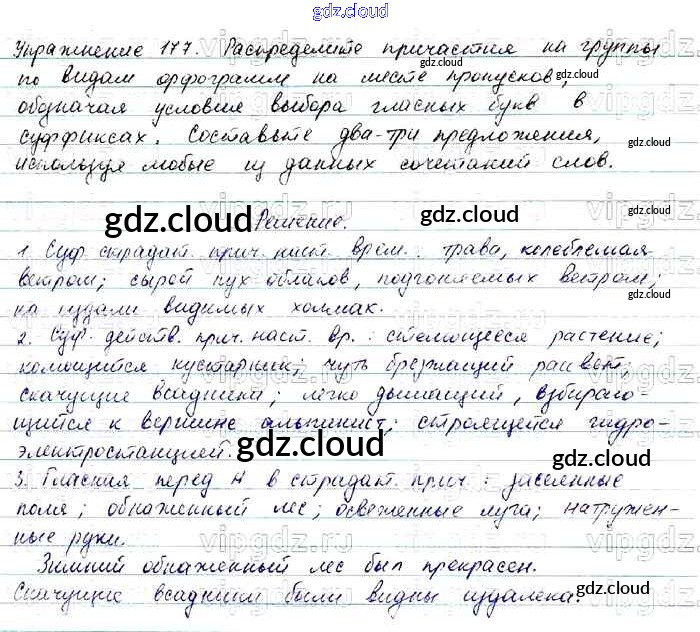 gdz.cloud
Упражнение 177. Распределите причастия на группы
по видам орфограмм на месте пропусков,
обозначая условия выбора гласных букв в
суффиксах. Составьте два-три предложения,
используя любые из данных сочетаний слов.
Решение.
1. Суф. страдат. прич. наст. врем.: трава, колеблемая
ветром; сырой пух облаков, подгоняемых ветром;
на издали видимых холмах.
2. Суф. действ. прич. наст. вр.: стелющееся растение;
колющийся кустарник; чуть брезжащий рассвет;
скачущие всадники; легко дышащий, взбираю-
щийся к вершине альпинист; строящейся гидро-
электростанцией.
3. Гласная перед Н в страдат. прич.: заселенные
поля; обнаженный лес; освеженные луга; натружен-
ные руки.
Зимний обнаженный лес был прекрасен.
Скачущие всадники были видны издалека.